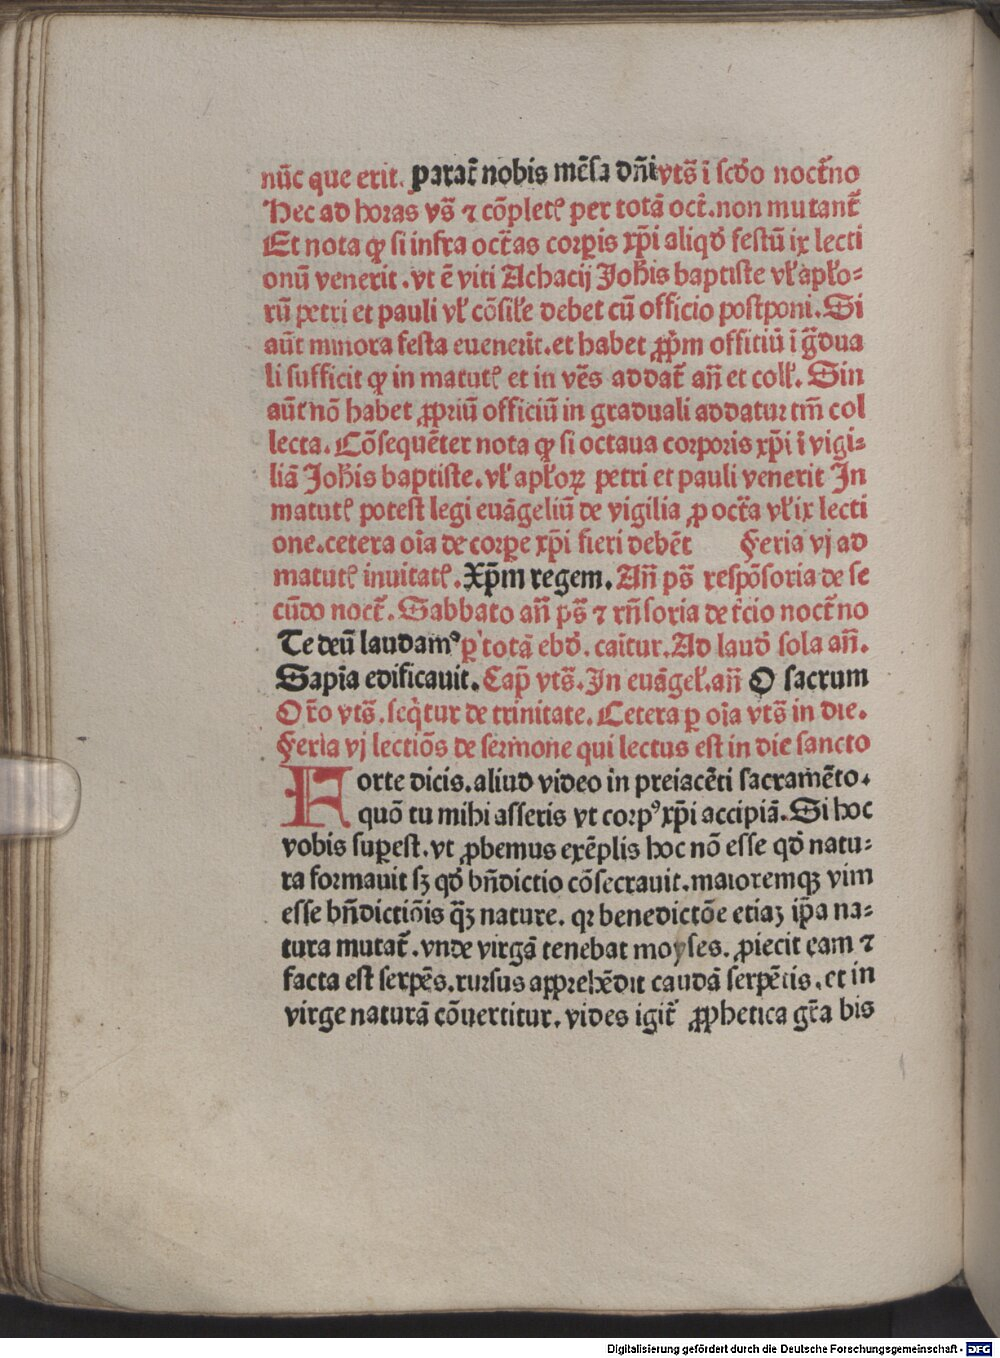 nūc que erit. parat᷑ nobis mēsa dn̄i vts̄ ī scd̄o noct᷑no
Hec ad horas vs̄ ⁊ cōpletꝭ per totā oct᷑. non mutant᷑
Et nota ꝙ si infra oct᷑as corꝑis xp̄i aliqd̄ festū ix lecti
onū venerit . vt ē viti Achacij Joh̄is baptiste vl̓ apl̓o-
rū petri et pauli vl̓ cōsil̓e debet cū officio postponi. Si
aūt minora festa euenerīt. et habet ꝓpm̄ offitiū ī g̃dua
li sufficit ꝙ in matutꝭ et in vēs addat᷑ an̄ et coll̓. Sin
aūt nō habet ꝓpriū officiū in graduali addatur tm̄ col
lecta. Cōsequēter nota ꝙ si octaua corporis xp̄i ī vigi-
liā Joh̄is baptiste. vl̓ apl̓oꝝ petri et pauli venerit In
matutꝭ potest legi euāgeliū de vigilia ꝓ oct᷑a vl̓ ix lecti
one. cetera oīa de corꝑe xp̄i fieri debēt Feria vj ad
matutꝭ inuitatꝭ. Xp̄m regem. An̄ ps̄ respōsoria de se
cūdo noct᷑. Sabbato an̄ ps̄ ⁊ rn̄soria de t᷑cio noct᷑no
Te deū laudamꝰ ꝑ totā ebd̄. canit᷑ur. Ad laud̄ sola an̄.
Sapīa edificauit. Cap̄ vts̄. In euāgel̓. an̄ O sacrum
Or̄o vts̄. seqͥtur de trinitate. Cetera ꝑ oīa vts̄ in die.
Feria vj lectiōs de sermone qui lectus est in die sancto
Forte dicis. aliud video in preiacēti sacramēto.
quō tu mihi asseris vt corpꝰ xp̄i accipiā. Si hoc
vobis suꝑest. vt ꝓbemus exēplis hoc nō esse qd̄ natu-
ra formauit sꝫ qd̄ bn̄dictio cōsecrauit. maioremqꝫ vim
esse bn̄dictiōis q̄ꝫ nature. qꝛ benedictōe etiaꝫ ip̄a na-
tura mutat᷑. vnde virgā tenebat moyses. ꝓiecit eam ⁊
facta est serpēs. rursus apprehēdit caudā serpētis. et in
virge naturā cōuertitur. vides igit᷑ ꝓphetica gr̄a bis
Digitalisierung gefördert durch die Deutsche Forschungsgemeinschaft - DFG